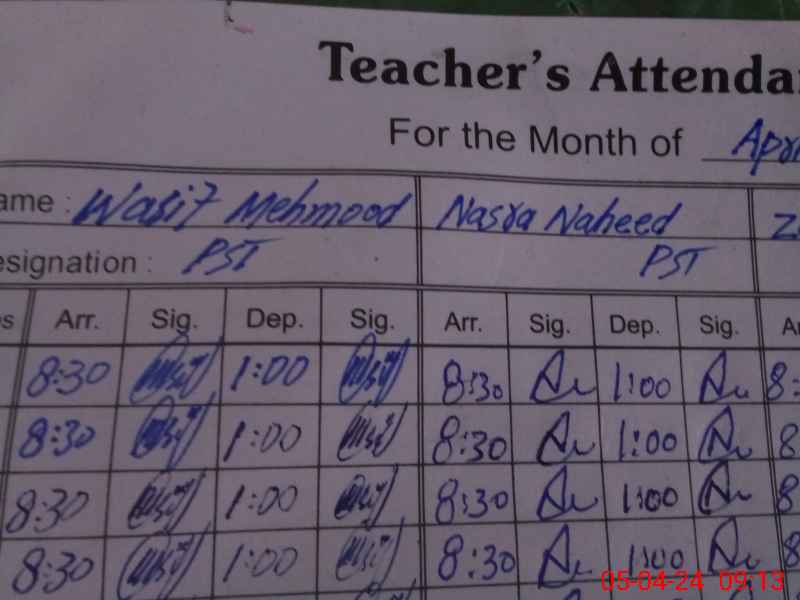 Teacher's Attenda
For the Month of Apr
ame : Wasif Mehmood Nasra Naheed Z
esignation : PST PST
s Arr. Sig. Dep. Sig. Arr. Sig. Dep. Sig. Ar
8:30 1:00 8:30 1:00 8:
8:30 1:00 8:30 1:00 8
8:30 1:00 8:30 1:00 8
8:30 1:00 8:30 1:00 8
05-04-24 09:13